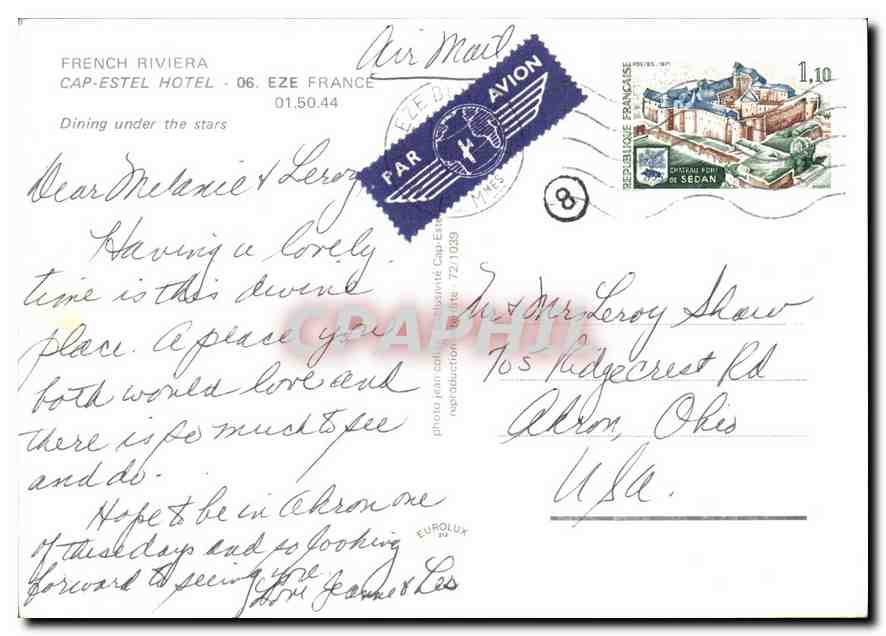 FRENCH RIVIERA
CAP-ESTEL HOTEL - 06. EZE FRANCE
01.50.44
Dining under the stars
Air Mail
PAR AVION
EZE B
Mmes
8
POSTES 1971
1,10
REPUBLIQUE FRANÇAISE
CHATEAU FORT
DE SEDAN
Dear Melanie & Leroy
Having a lovely
time is this divine
place. A peace you
both would love and
there is so much to see
and do.
Hope to be in Akron one
of these days and so looking
forward to seeing you.
Love Jeanne & Les
Mr & Mrs Leroy Shaw
705 Ridgecrest Rd
Akron, Ohio
USA.
photo jean exclusivité Cap-Estel
reproduction 72/1039
EUROLUX
CPAPHIL